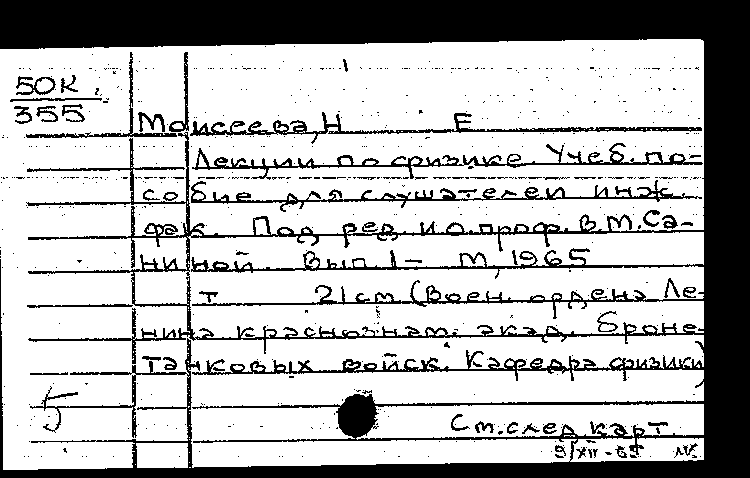 50К
355
Моисеева, Н Е
Лекции по физике. Учеб. по-
собие для слушателей инж.
фак. Под ред. и.о. проф. В.М. Са-
ниной. Вып. 1- М, 1965
т 21 см (Воен. ордена Ле-
нина краснознам. акад. броне-
танковых войск. Кафедра физики)
5
См. след карт
9/XII-65